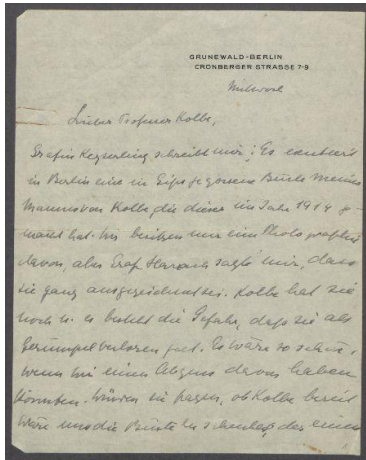 GRUNEWALD-BERLIN
CRONBERGER STRASSE 7-9
Mittwoch
Lieber Professor Kolbe,
Gräfin Keyserling schreibt mir: „Es existiert
in Berlin eine in Gips gegossene Büste meines
Mannes von Kolbe, die dieser im Jahr 1919 ge-
macht hat. Wir besitzen nur eine Photographie
davon, aber Graf Harrach sagte mir, dass
sie ganz ausgezeichnet sei. Kolbe hat sie
noch u. es besteht die Gefahr, daß sie als
Gerümpel verloren geht. Es wäre so schön,
wenn wir einen Abguss davon haben
könnten. Würden Sie fragen, ob Kolbe bereit
wäre uns die Büste zu schenken, oder einen